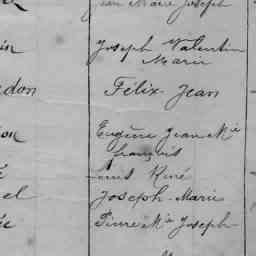 Jean Marie Joseph
in Joseph Valentin
Marie
don Félix Jean
on Eugène Jean Mie
François
Louis René
el Joseph-Marie
Pierre Mie Joseph